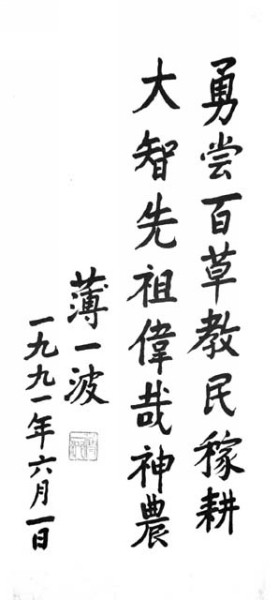 勇尝百草教民稼耕
大智先祖偉哉神農
薄一波
一九九一年六月一日